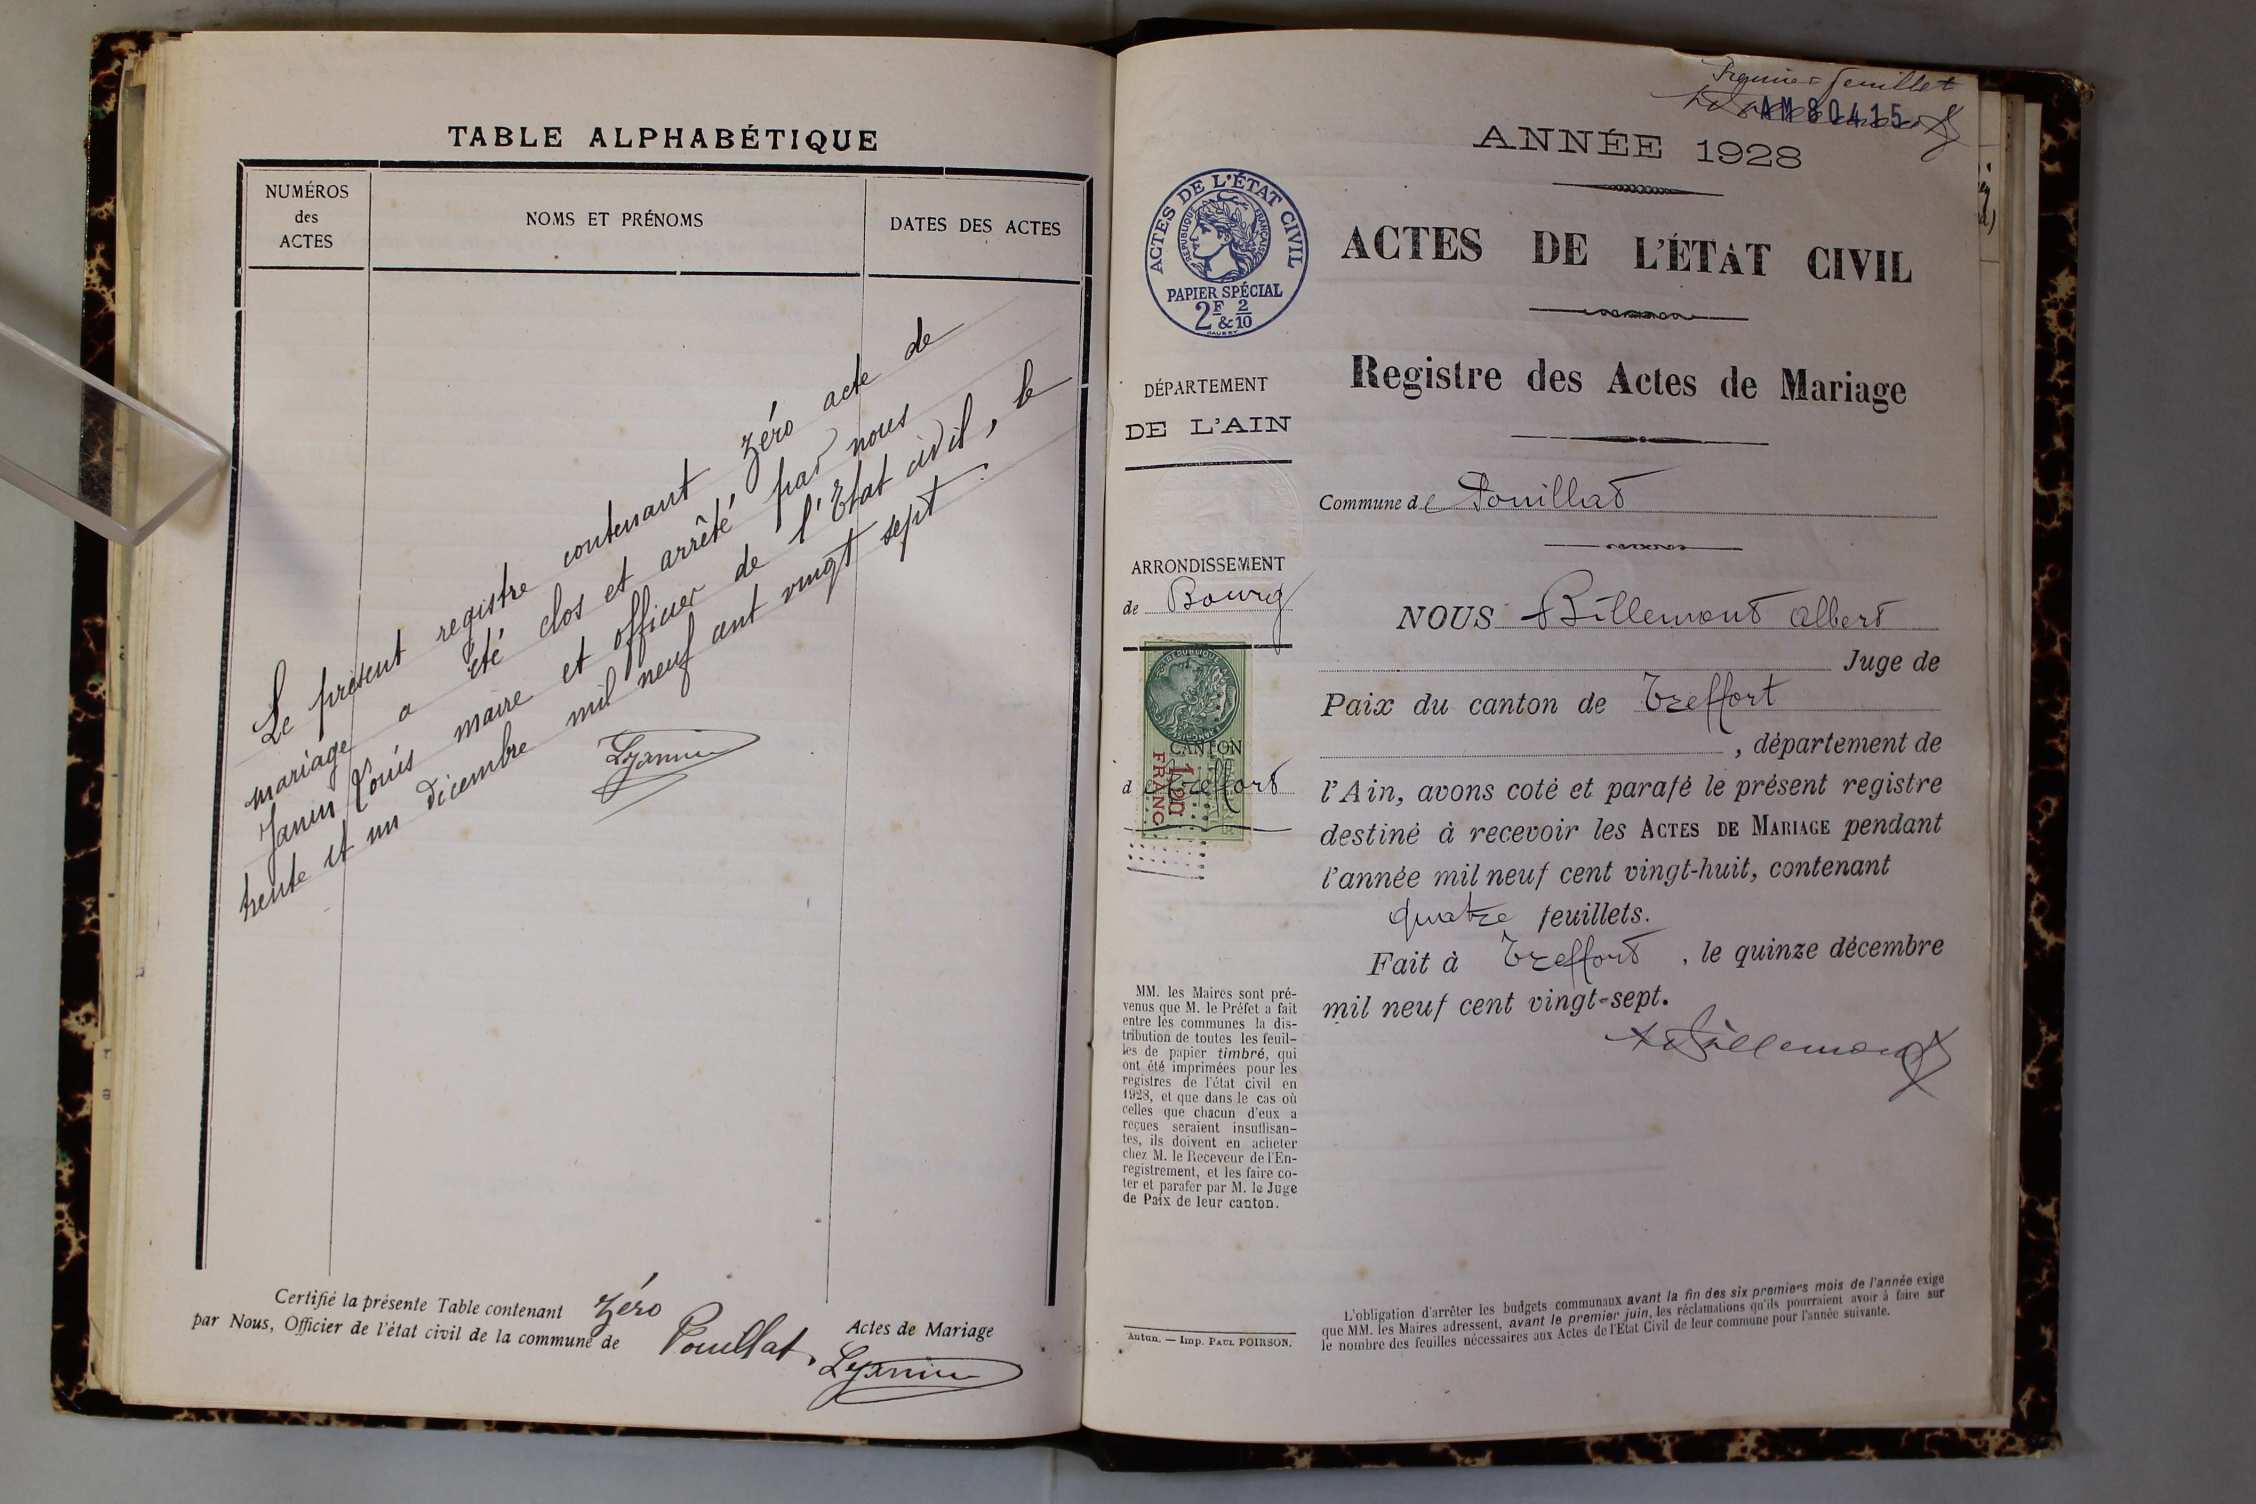 TABLE ALPHABÉTIQUE
NUMÉROS
des
ACTES
NOMS ET PRÉNOMS
DATES DES ACTES
Le présent registre contenant zéro acte de
mariage a été clos et arrêté par nous
Janin Louis maire et officier de l'Etat civil, le
trente et un décembre mil neuf cent vingt sept.
LJanin
Certifié la présente Table contenant zéro Actes de Mariage
par Nous, Officier de l'état civil de la commune de Pouillat,
LJanin
Premier feuillet
AM 80415
ANNÉE 1928
ACTES DE L'ÉTAT CIVIL
RÉPUBLIQUE FRANÇAISE
PAPIER SPÉCIAL
2F & 2/10
ACTES DE L'ÉTAT CIVIL
Registre des Actes de Mariage
DÉPARTEMENT
DE L'AIN
Commune de Pouillat
ARRONDISSEMENT
de Bourg
CANTON
de Treffort
1 FRANC
NOUS Billemont Albert
Juge de
Paix du canton de Treffort
, département de
l'Ain, avons coté et parafé le présent registre
destiné à recevoir les ACTES DE MARIAGE pendant
l'année mil neuf cent vingt-huit, contenant
quatre feuillets.
Fait à Treffort, le quinze décembre
mil neuf cent vingt-sept.
ABillemont
MM. les Maires sont pré-
venus que M. le Préfet a fait
entre les communes la dis-
tribution de toutes les feuil-
les de papier timbré, qui
ont été imprimées pour les
registres de l'état civil en
1928, et que dans le cas où
celles que chacun d'eux a
reçues seraient insuffisan-
tes, ils doivent en acheter
chez M. le Receveur de l'En-
registrement, et les faire co-
ter et parafer par M. le Juge
de Paix de leur canton.
Autun. — Imp. PAUL POIRSON.
L'obligation d'arrêter les budgets communaux avant la fin des six premiers mois de l'année exige
que MM. les Maires adressent, avant le premier juin, les réclamations qu'ils pourraient avoir à faire sur
le nombre des feuilles nécessaires aux Actes de l'Etat Civil de leur commune pour l'année suivante.